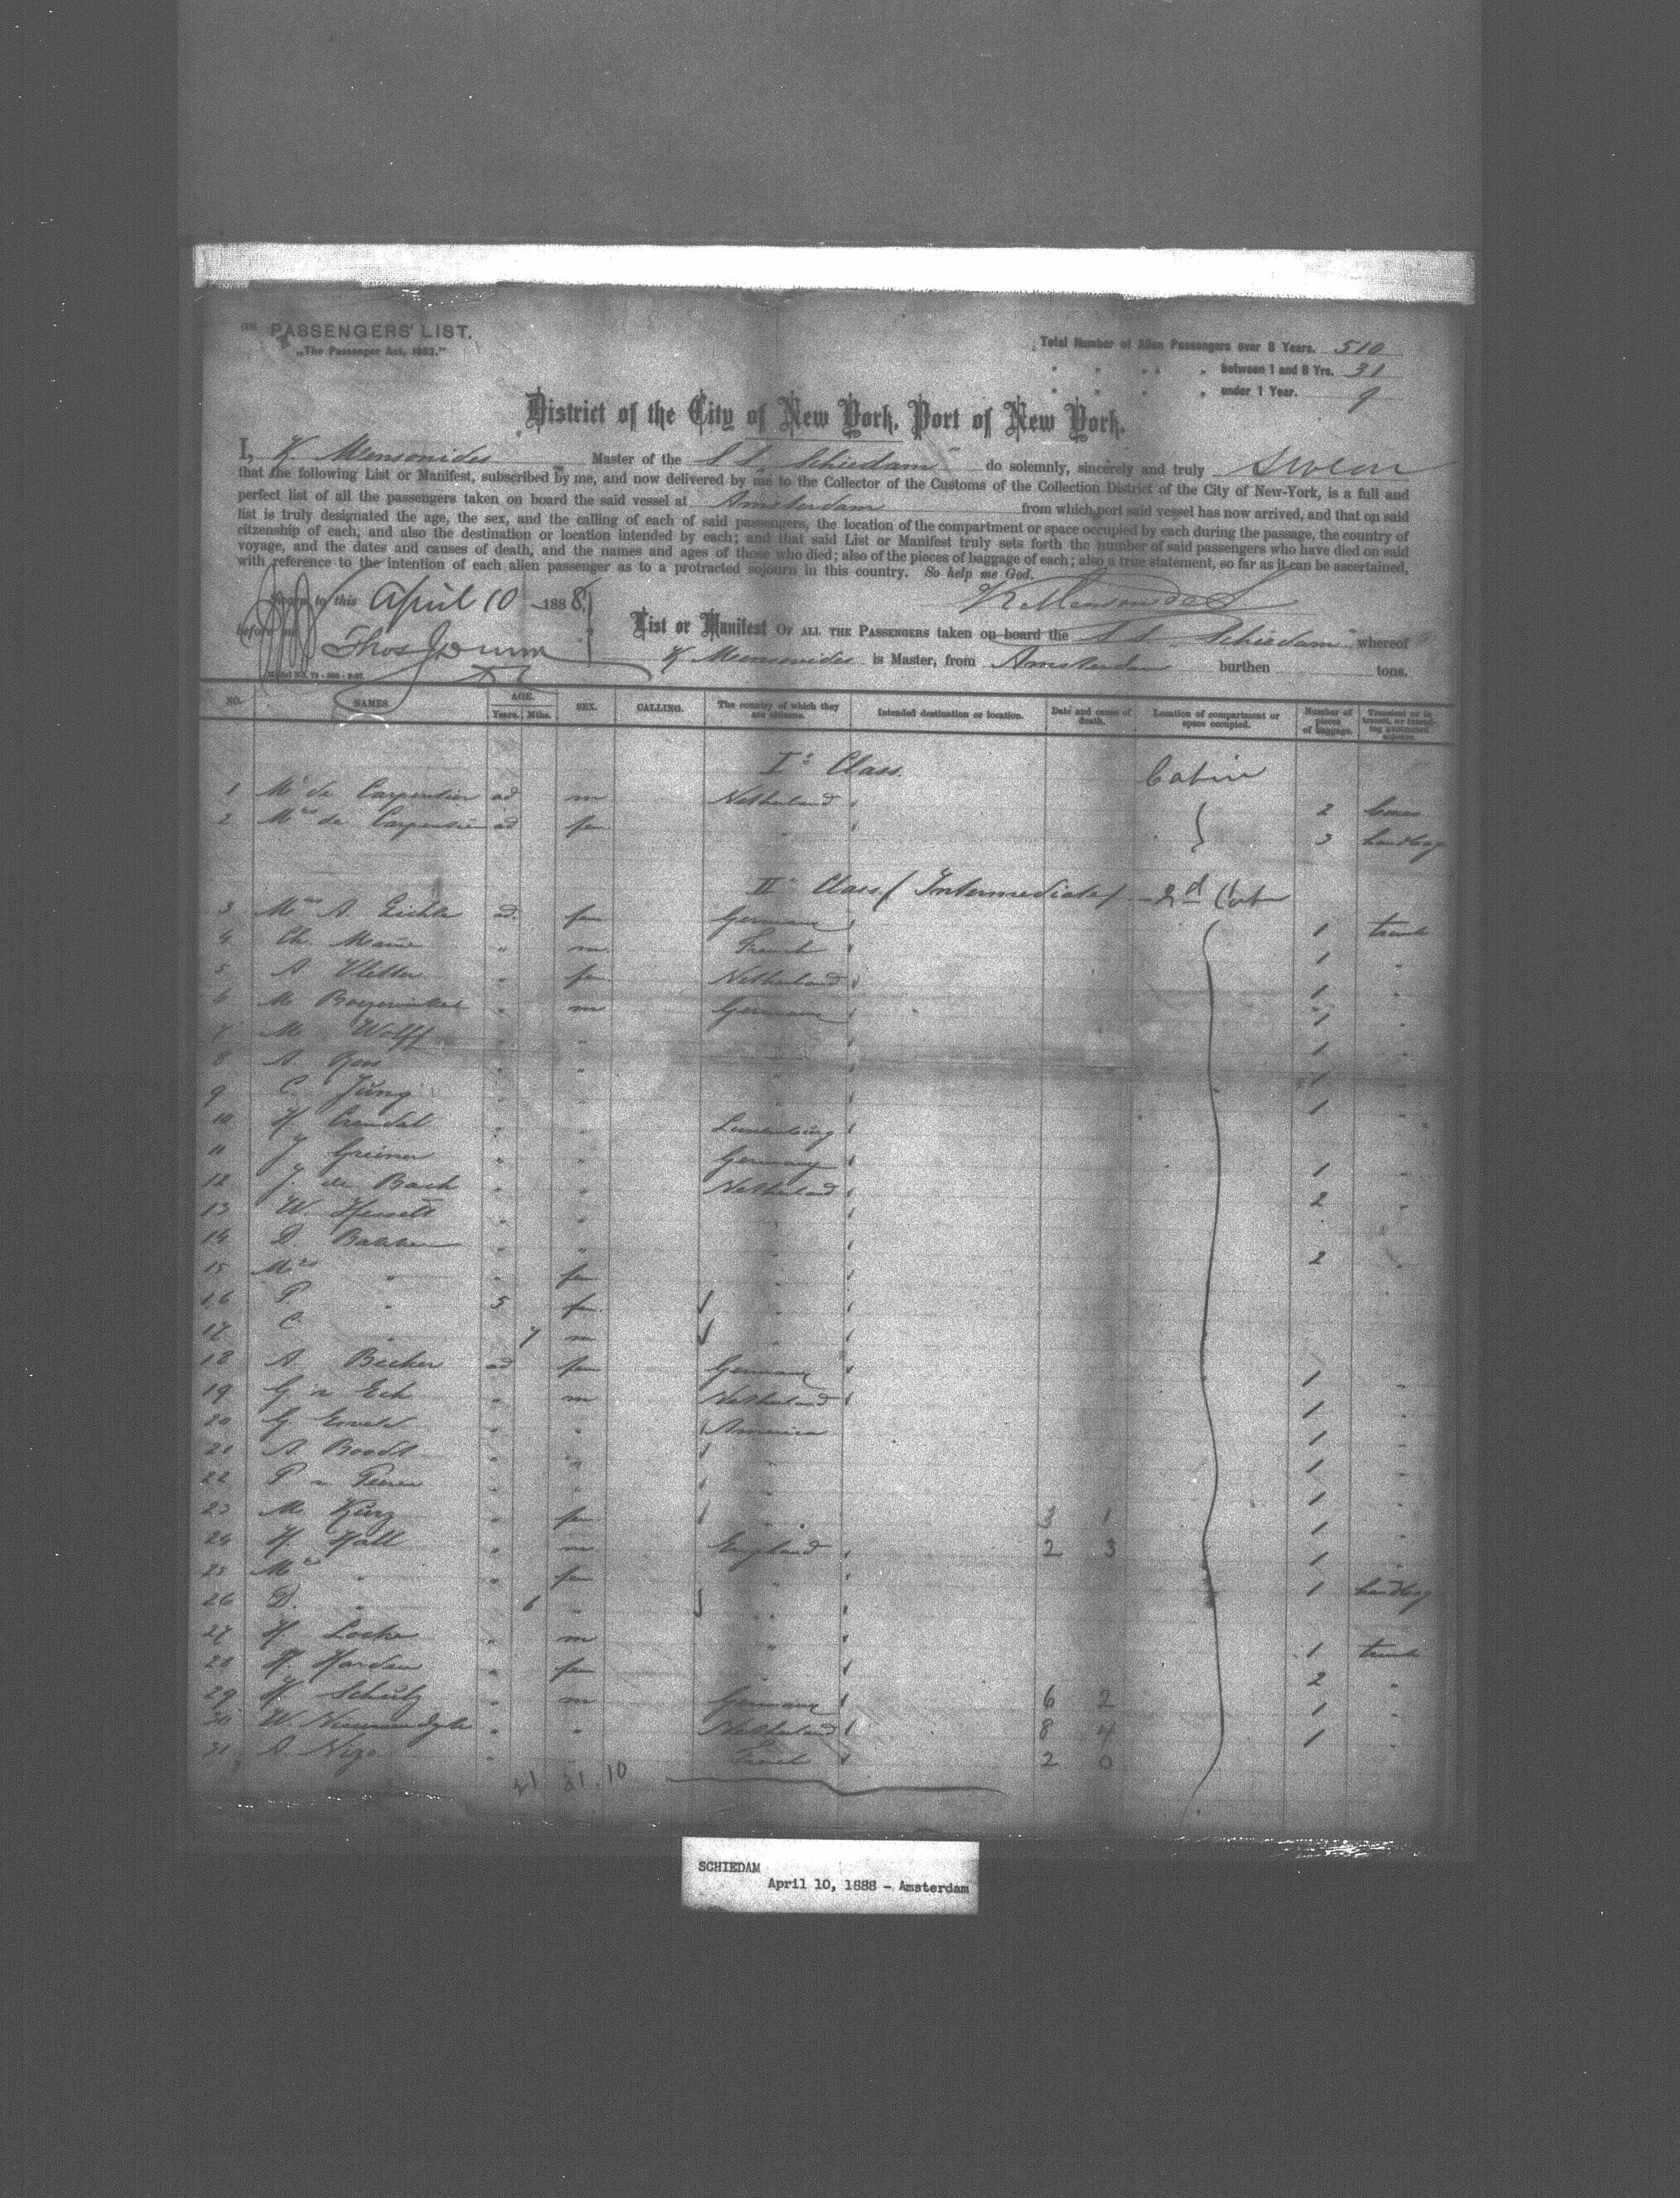 PASSENGERS' LIST.
„The Passenger Act, 1882."
Total Number of Alien Passengers over 8 Years. 510
" " " " between 1 and 8 Yrs. 31
" " " " under 1 Year. 9
District of the City of New York, Port of New York.
I, K. Mensonides Master of the S.S. "Schiedam" do solemnly, sincerely and truly swear
that the following List or Manifest, subscribed by me, and now delivered by me to the Collector of the Customs of the Collection District of the City of New-York, is a full and
perfect list of all the passengers taken on board the said vessel at Amsterdam from which port said vessel has now arrived, and that on said
list is truly designated the age, the sex, and the calling of each of said passengers, the location of the compartment or space occupied by each during the passage, the country of
citzenship of each, and also the destination or location intended by each; and that said List or Manifest truly sets forth the number of said passengers who have died on said
voyage, and the dates and causes of death, and the names and ages of those who died; also of the pieces of baggage of each; also a true statement, so far as it can be ascertained,
with reference to the intention of each alien passenger as to a protracted sojourn in this country. So help me God.
Sworn to this April 10 1888 K Mensonides
before me Thos J Dunn
List or Manifest OF ALL THE PASSENGERS taken on board the S.S. "Schiedam" whereof
K Mensonides is Master, from Amsterdam burthen tons.
NO. NAMES. AGE. Years. Mths. SEX. CALLING. The country of which they are citizens. Intended destination or location. Date and cause of death. Location of compartment or space occupied. Number of pieces of baggage. Transient or in transit, or intending protracted sojourn.
Iᵉ Class. Cabin
1 Mr de Carpentier ad m Netherland 2 boxes
2 Mrs de Carpentier ad fem " 3 handbag
IIᵉ Class (Intermediate) 2nd Cab
3 Mrs A. Eichle ad. fem Germany 1 trunk
4 Ch. Marie " m. French 1 "
5 A Vletter " fem Netherland 1 "
6 M " m Germany 1 "
7 M Wolff " " " 1 "
8 A Ross " " " 1 "
9 C. Jung " " " 1 "
10 H " " Luxemburg
11 J Greiner " " Germany 1 "
12 J. de Bach " " Netherland 2 "
13 W. Hessels " " "
14 D. Bakker " " " 2 "
15 Mrs " " fem "
16 P " 5 fem "
17 C " 7 m "
18 A Becker ad fem Germany 1 "
19 G v Eck " m Netherland 1 "
20 G " " America 1 "
21 A Boodt " " " 1 "
22 P v " " " 1 "
23 M King " fem " 3 1 1 "
24 H Hall " m England 2 3 1 "
25 Mrs " " fem " 1 handbag
26 D. " 6 " "
27 H Locke " m " 1 trunk
28 H. Harden " fem " 2 "
29 H Schulz " m Germany 6 2 1 "
30 W. " " Netherland 8 4 1 "
31 A. " " French 2 0
21 31 10
SCHIEDAM
April 10, 1888 - Amsterdam